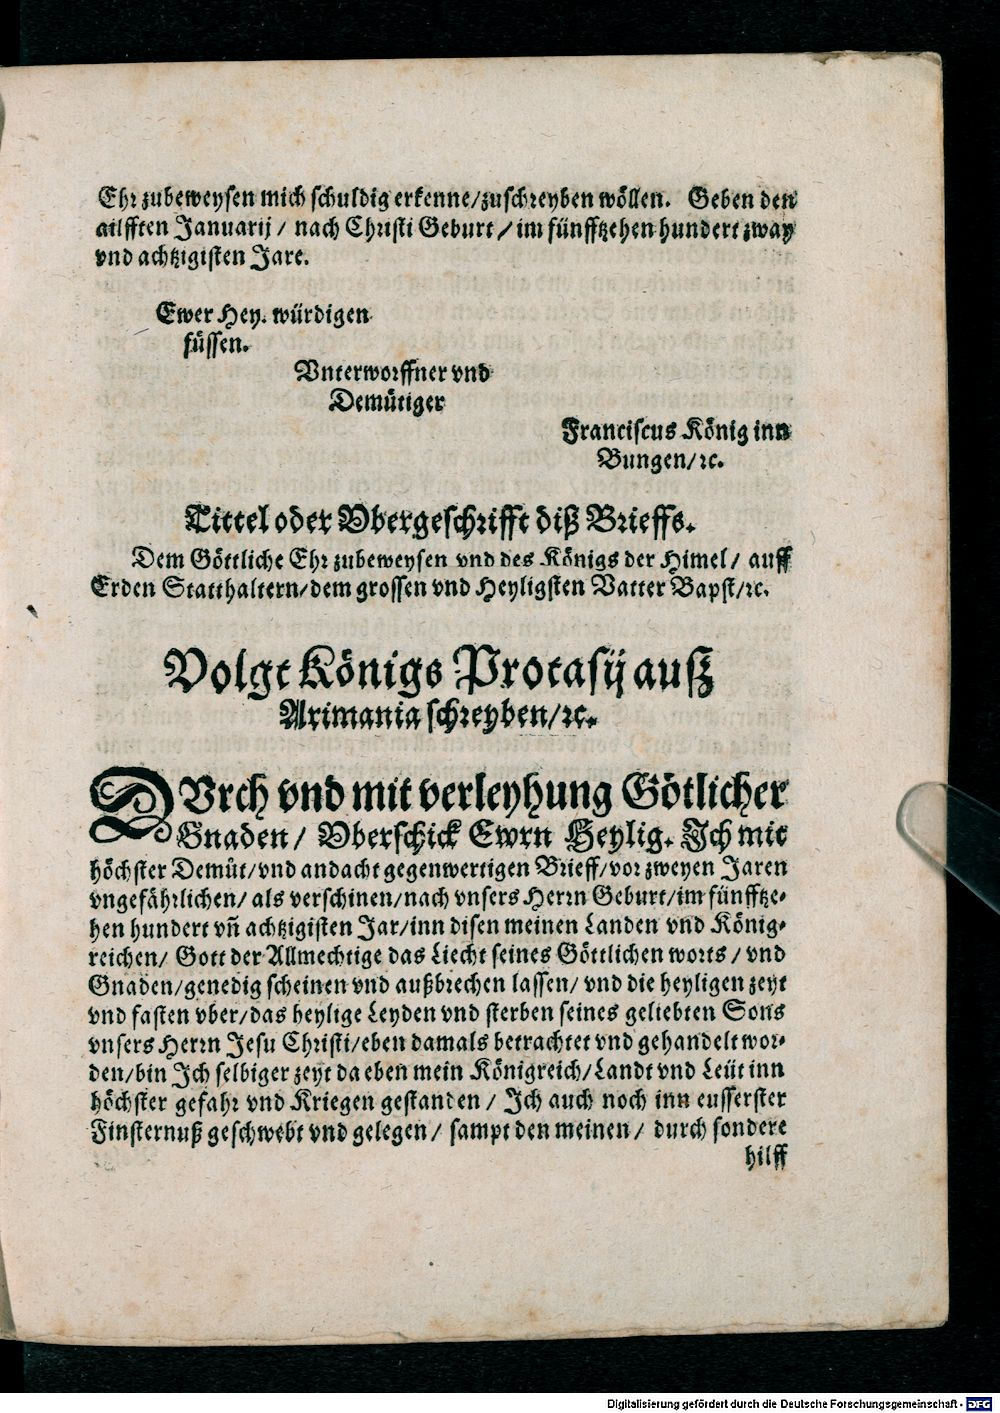 Ehr zubeweysen mich schuldig erkenne/zuschreyben wöllen. Geben den
ailfften Januarij / nach Christi Geburt / im fünfftzehen hundert zway
vnd achtzigisten Jare.
Ewer Hey. würdigen
füssen.
Vnterworffner vnd
Demütiger
Franciscus König inn
Bungen/ꝛc.
Tittel oder Vbergeschrifft diß Brieffs.
Dem Göttliche Ehr zubeweysen vnd des Königs der Himel/ auff
Erden Statthaltern/dem grossen vnd Heyligsten Vatter Bapst/ꝛc.
Volgt Königs Protasij auß
Arimania schreyben/ꝛc.
DVrch vnd mit verleyhung Götlicher
Gnaden/ Vberschick Ewrn Heylig. Ich mit
höchster Demüt/vnd andacht gegenwertigen Brieff/vor zweyen Jaren
vngefährlichen/ als verschinen/nach vnsers Herrn Geburt/im fünfftze-
hen hundert vn̄ achtzigisten Jar/inn disen meinen Landen vnd König-
reichen/ Gott der Allmechtige das Liecht seines Göttlichen worts / vnd
Gnaden/genedig scheinen vnd außbrechen lassen/ vnd die heyligen zeyt
vnd fasten vber/das heylige Leyden vnd sterben seines geliebten Sons
vnsers Herrn Jesu Christi/eben damals betrachtet vnd gehandelt wor-
den/bin Ich selbiger zeyt da eben mein Königreich/Landt vnd Leüt inn
höchster gefahr vnd Kriegen gestanden / Ich auch noch inn eusserster
Finsternuß geschwebt vnd gelegen/ sampt den meinen/ durch sondere
hilff
Digitalisierung gefördert durch die Deutsche Forschungsgemeinschaft - DFG